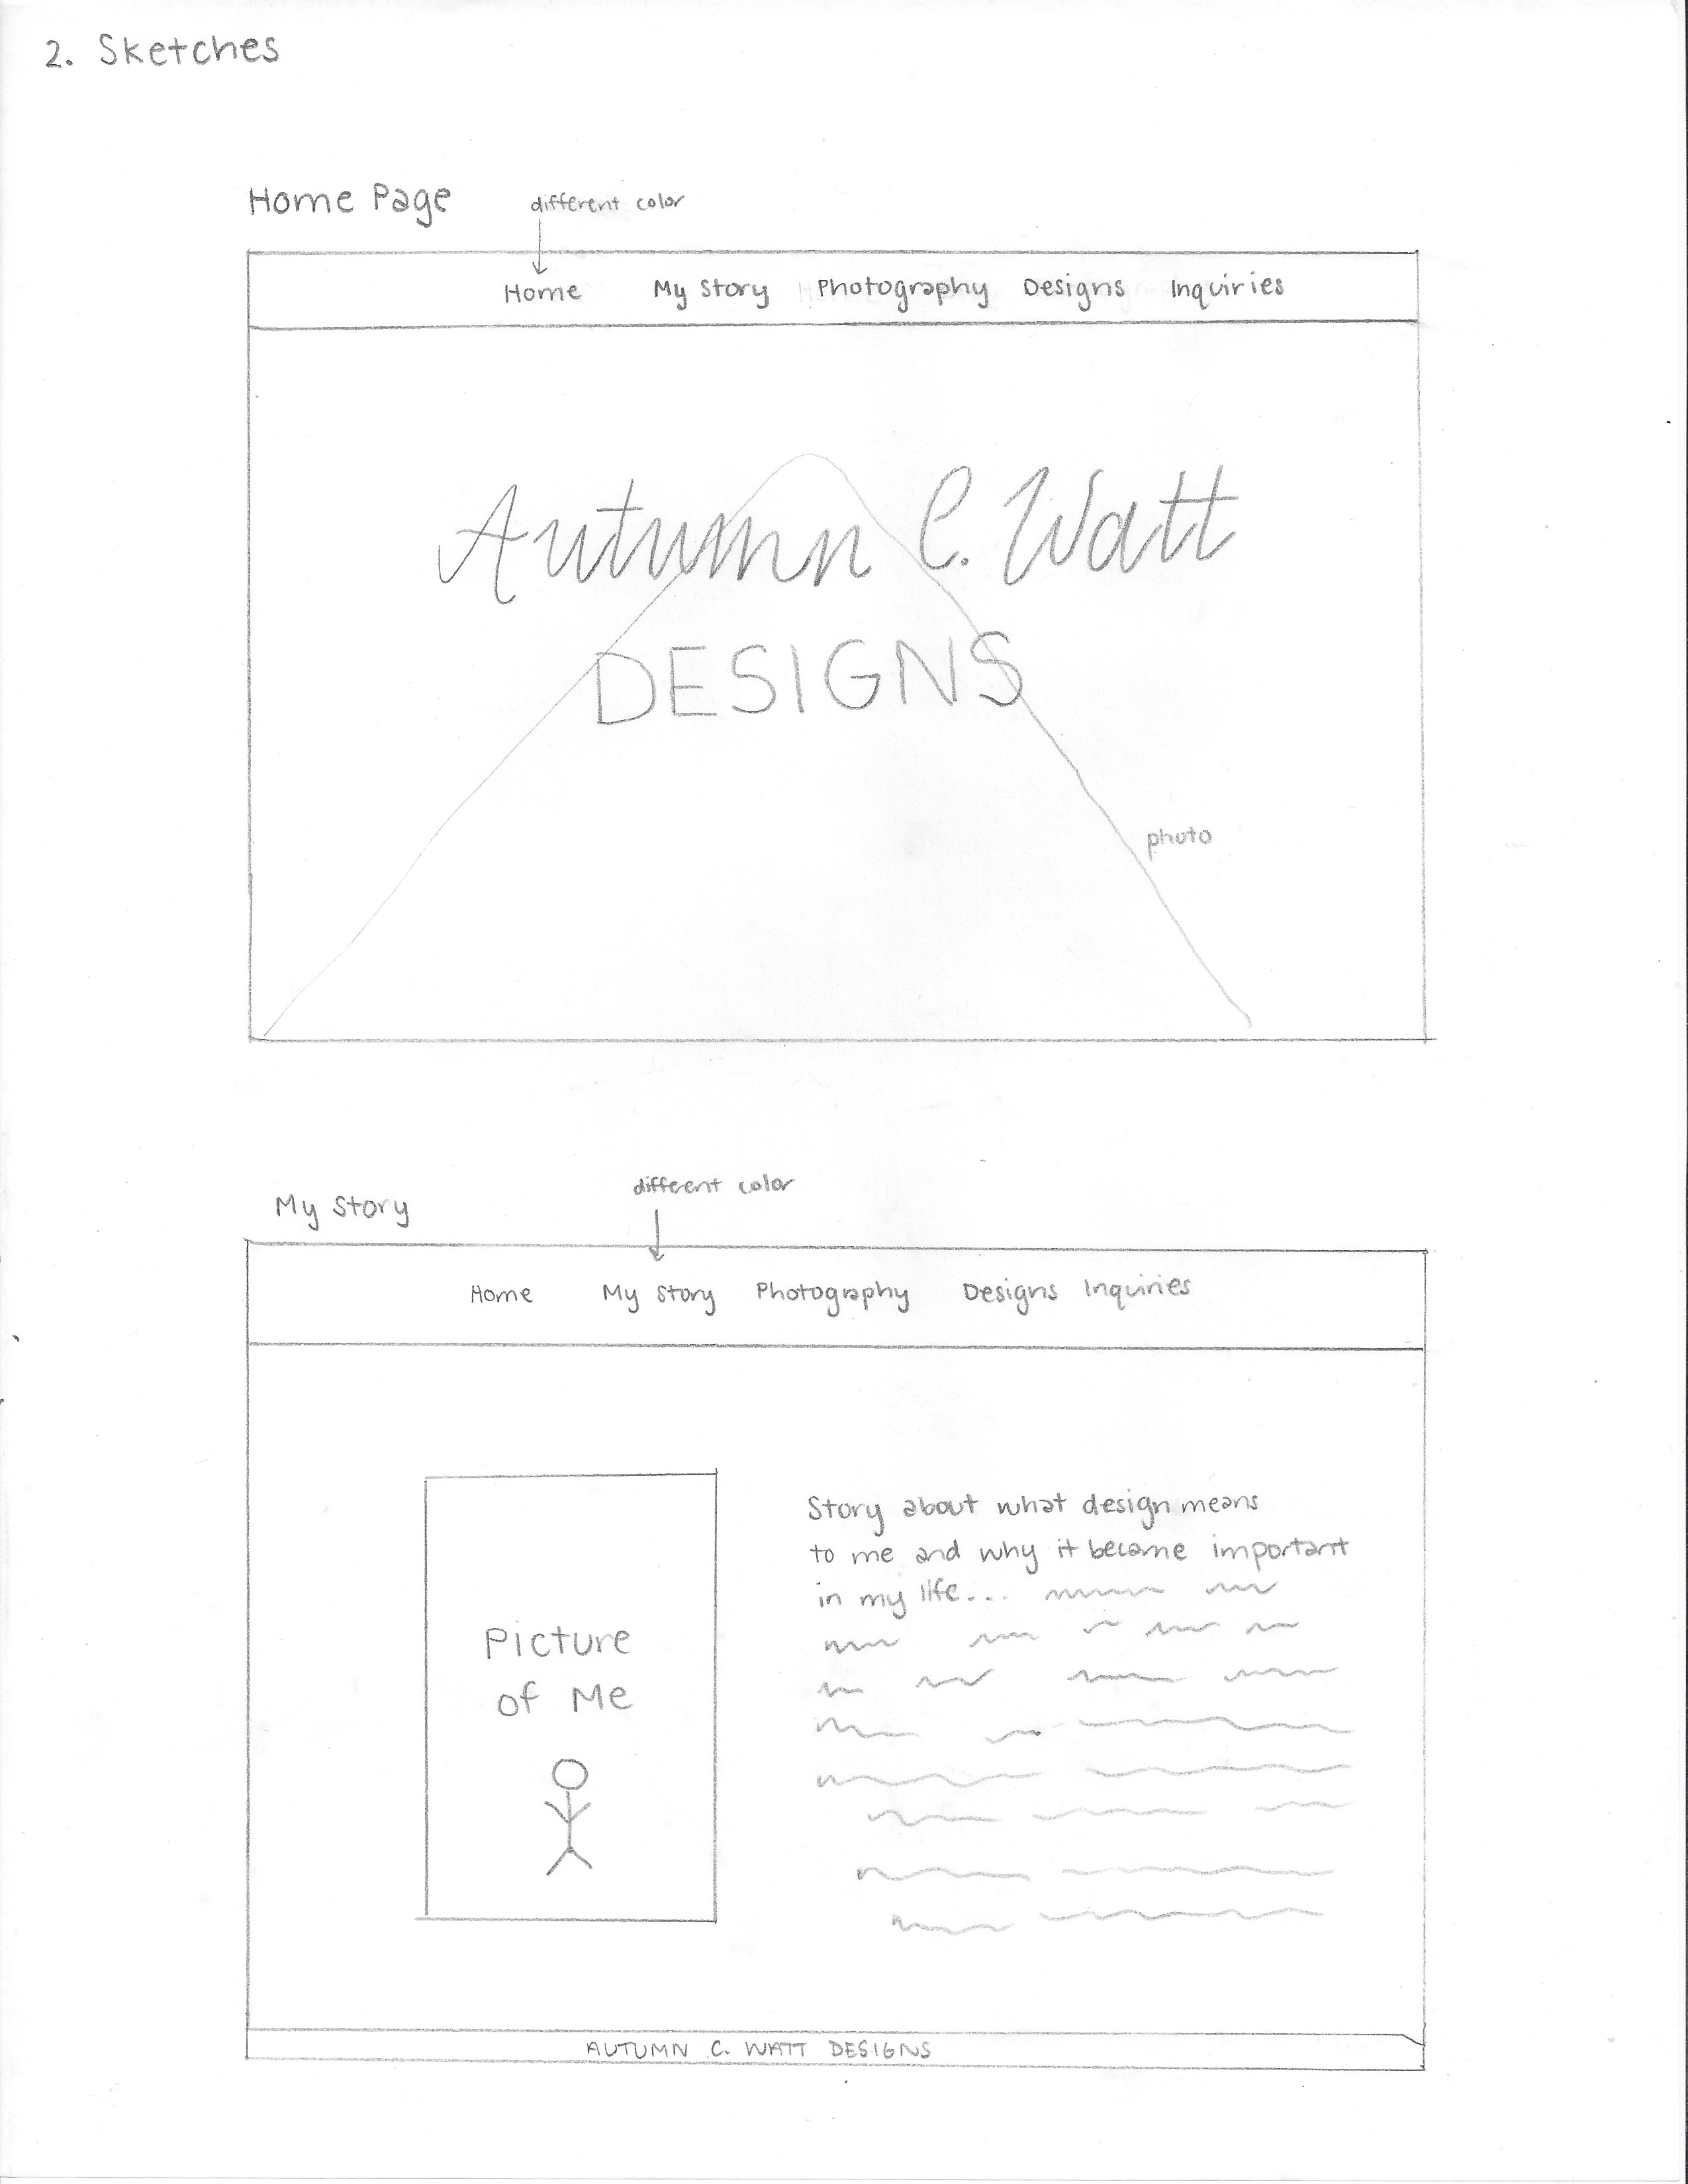 2. Sketches
Home Page
different color
Home My Story Photography Designs Inquiries
Autumn C. Watt
DESIGNS
photo
My Story
different color
Home My Story Photography Designs Inquiries
Picture
of Me
Story about what design means
to me and why it became important
in my life...
AUTUMN C. WATT DESIGNS